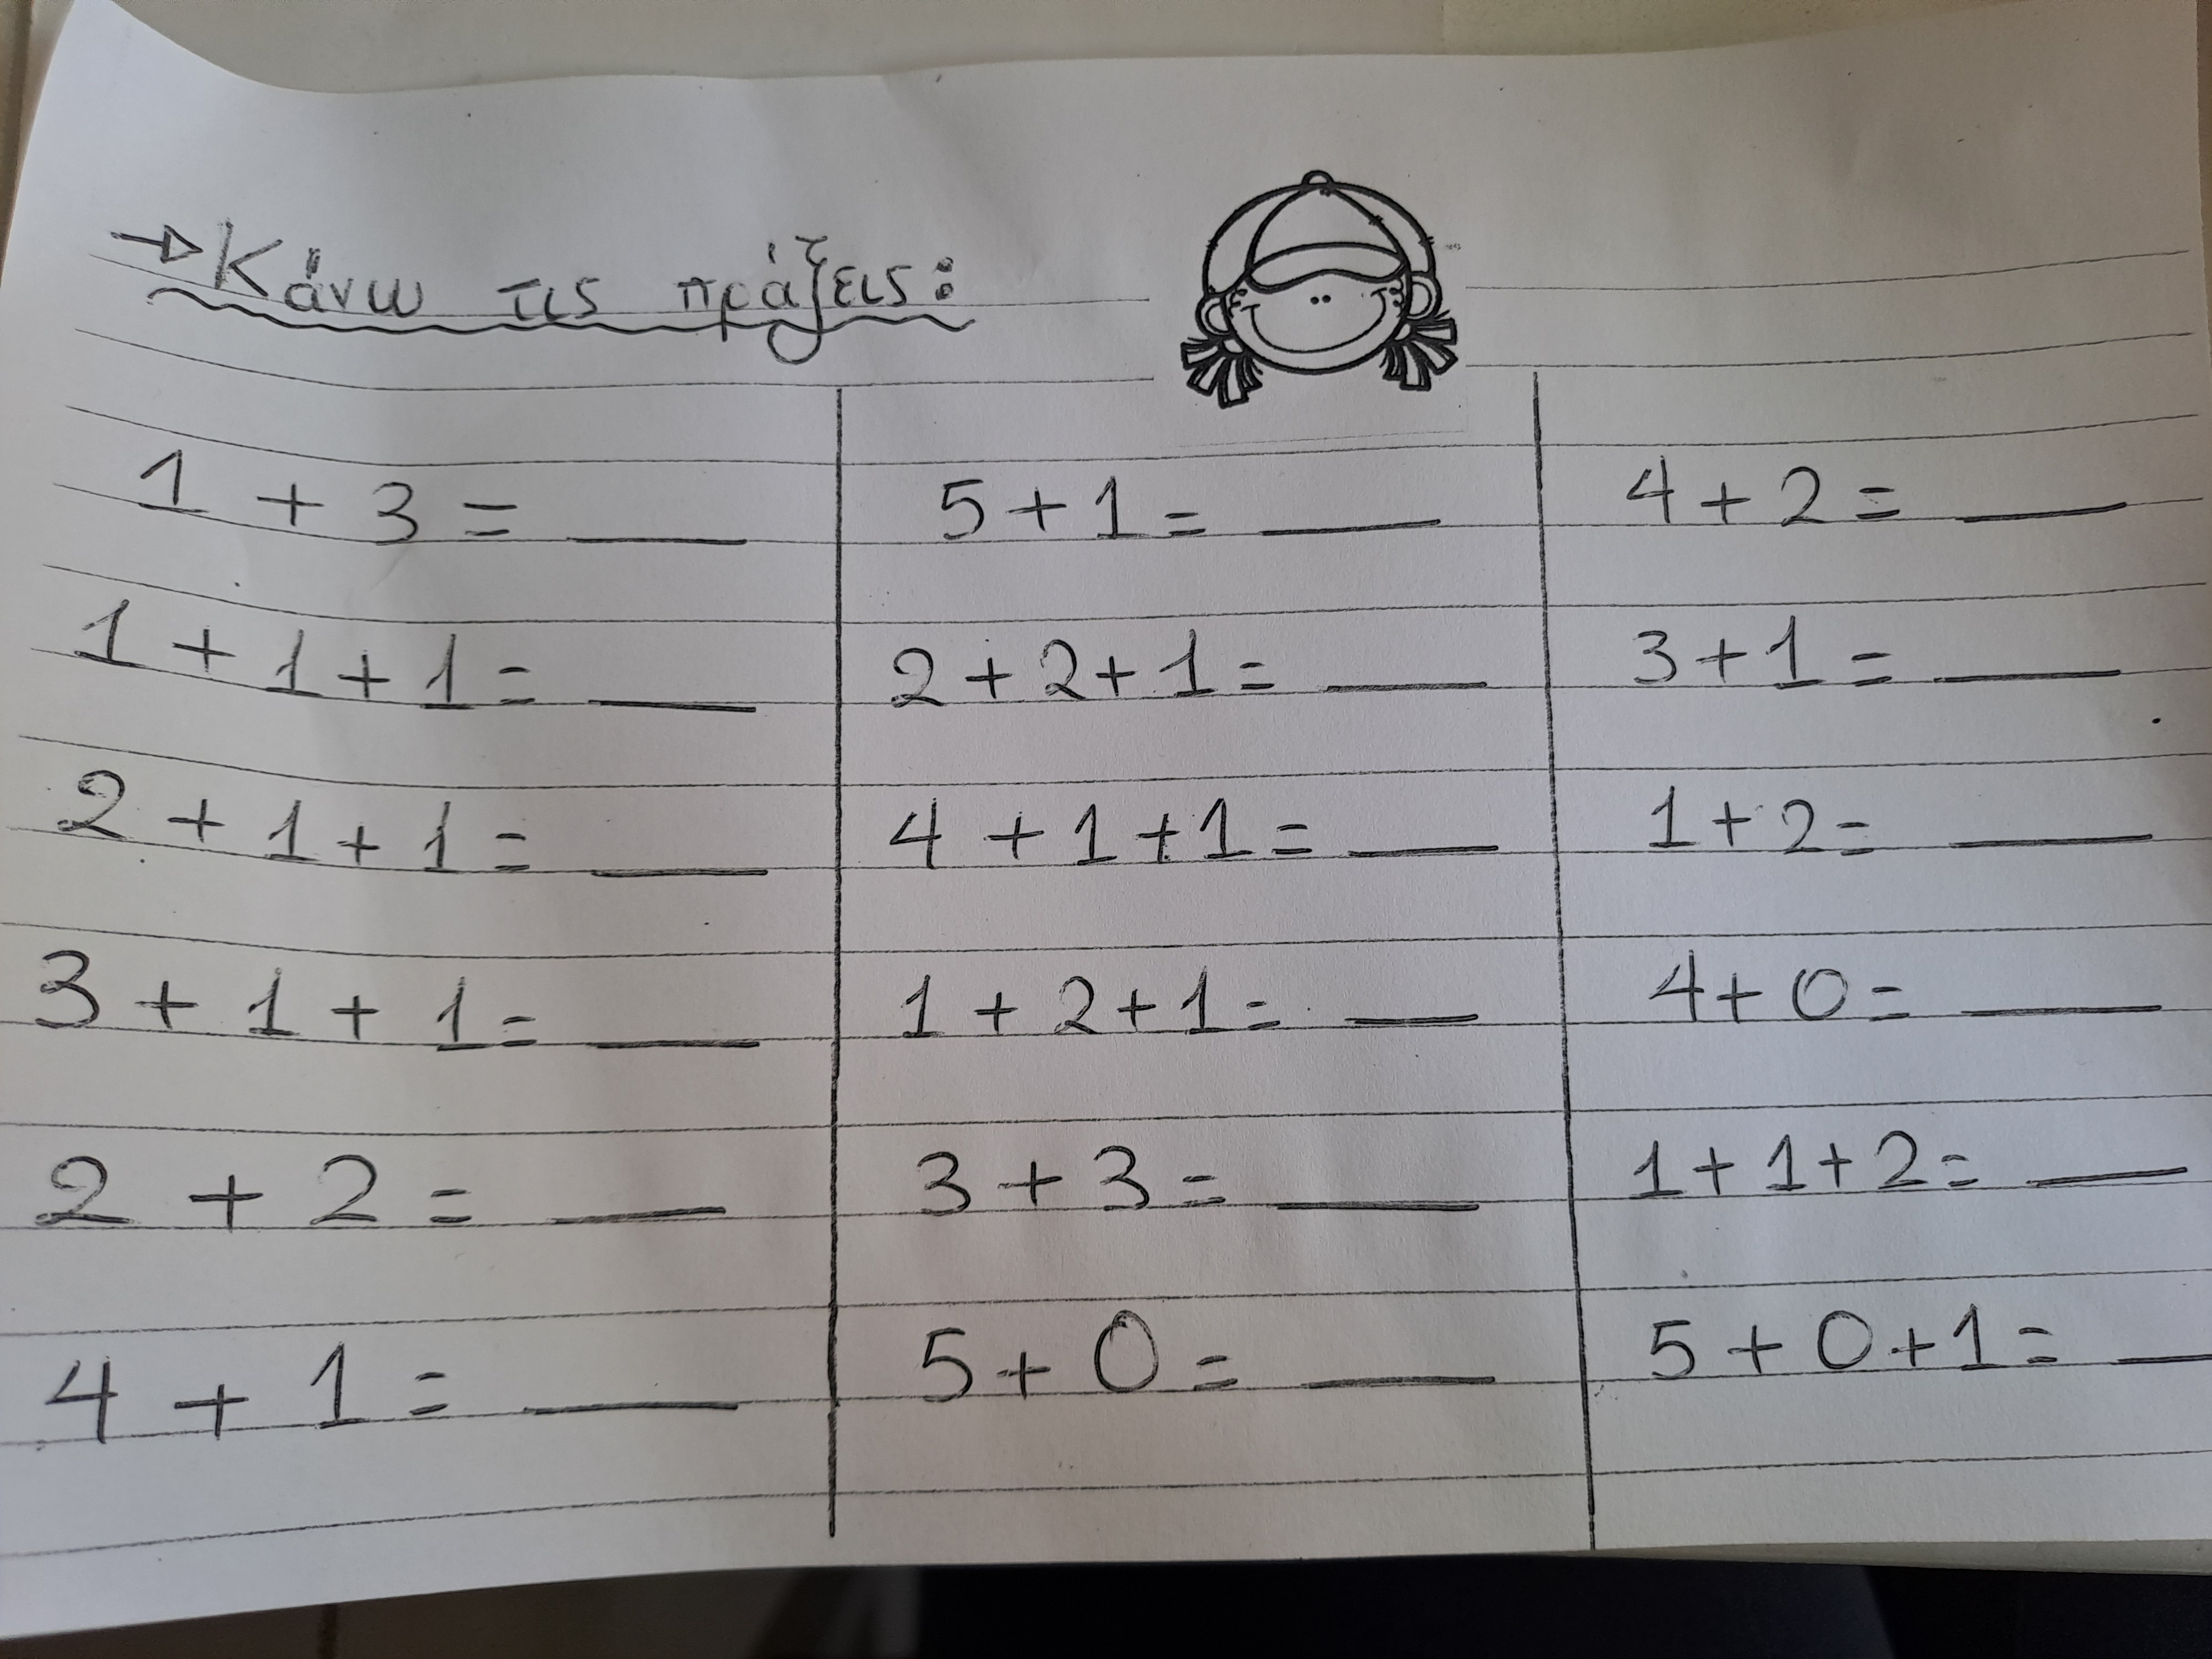 →Κάνω τις πράξεις:
1 + 3 = ___ 5+1= ___ 4+2= ___
1+1+1= ___ 2+2+1= ___ 3+1= ___
2+1+1= ___ 4+1+1= ___ 1+2= ___
3+1+1= ___ 1+2+1= ___ 4+0= ___
2 + 2 = ___ 3+3= ___ 1+1+2= ___
4 + 1 = ___ 5+0= ___ 5+0+1= ___